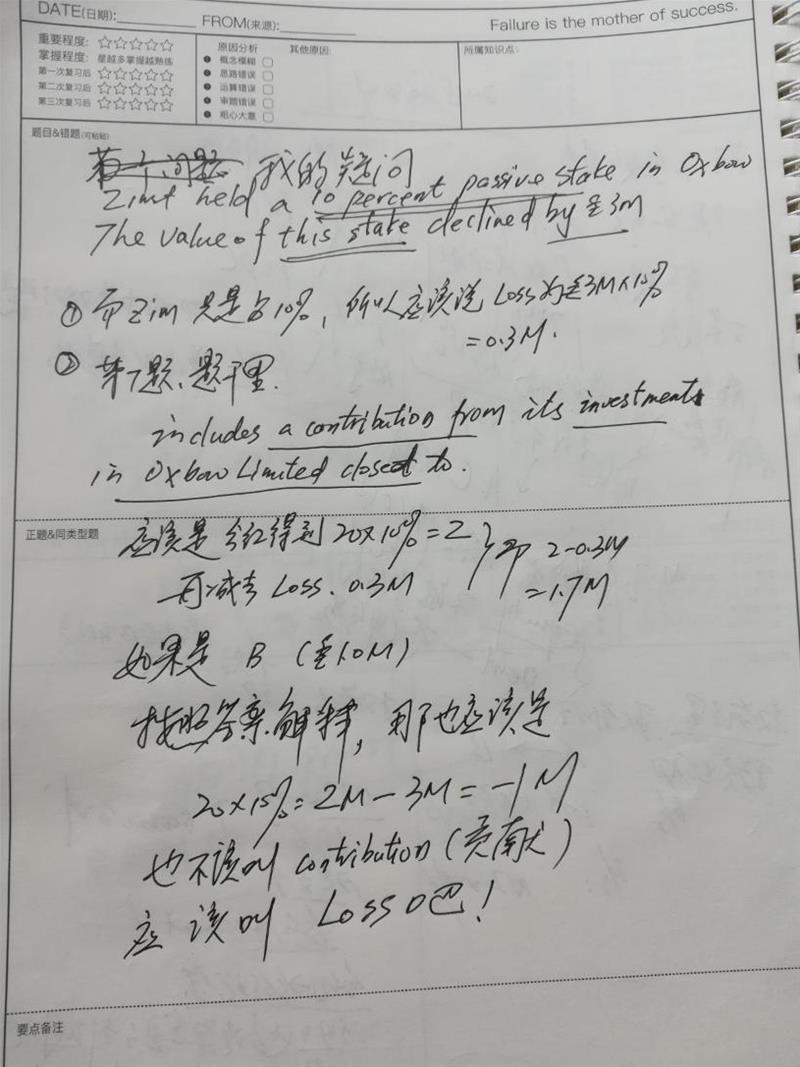 DATE(日期):
FROM(来源):
Failure is the mother of success.
重要程度: ☆☆☆☆☆
掌握程度: 星越多掌握越熟练
第一次复习后 ☆☆☆☆☆
第二次复习后 ☆☆☆☆☆
第三次复习后 ☆☆☆☆☆
原因分析 其他原因:
概念模糊
思路错误
运算错误
审题错误
粗心大意
所属知识点:
题目&错题(可粘贴)
第一个问题 我的疑问
Zimt held a 10 percent passive stake in Oxbow
The value of this stake declined by £3M
① 而Zim 只是占10%, 所以应该说 Loss为£3M×10%
=0.3M.
② 第7题、题干里.
includes a contribution from its investment
in Oxbow Limited closest to.
正题&同类型题
应该是分红得到 20×10%=2
再减去 Loss. 0.3M
即 2-0.3M
=1.7M
如果是 B (£1.0M)
按照答案解释, 那也应该是
20×10%=2M-3M=-1M
也不该叫 contribution (贡献)
应该叫 Loss吧!
要点备注